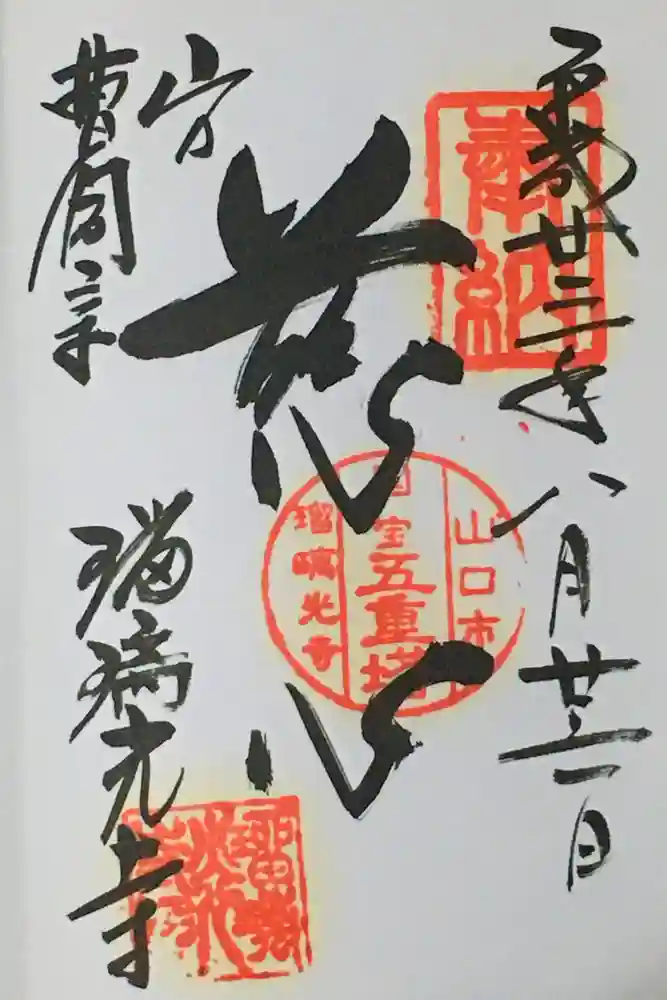 奉納
平成廿三年八月
日
慈心
山口市
国宝五重塔
瑠璃光寺
曹洞宗
瑠璃光寺